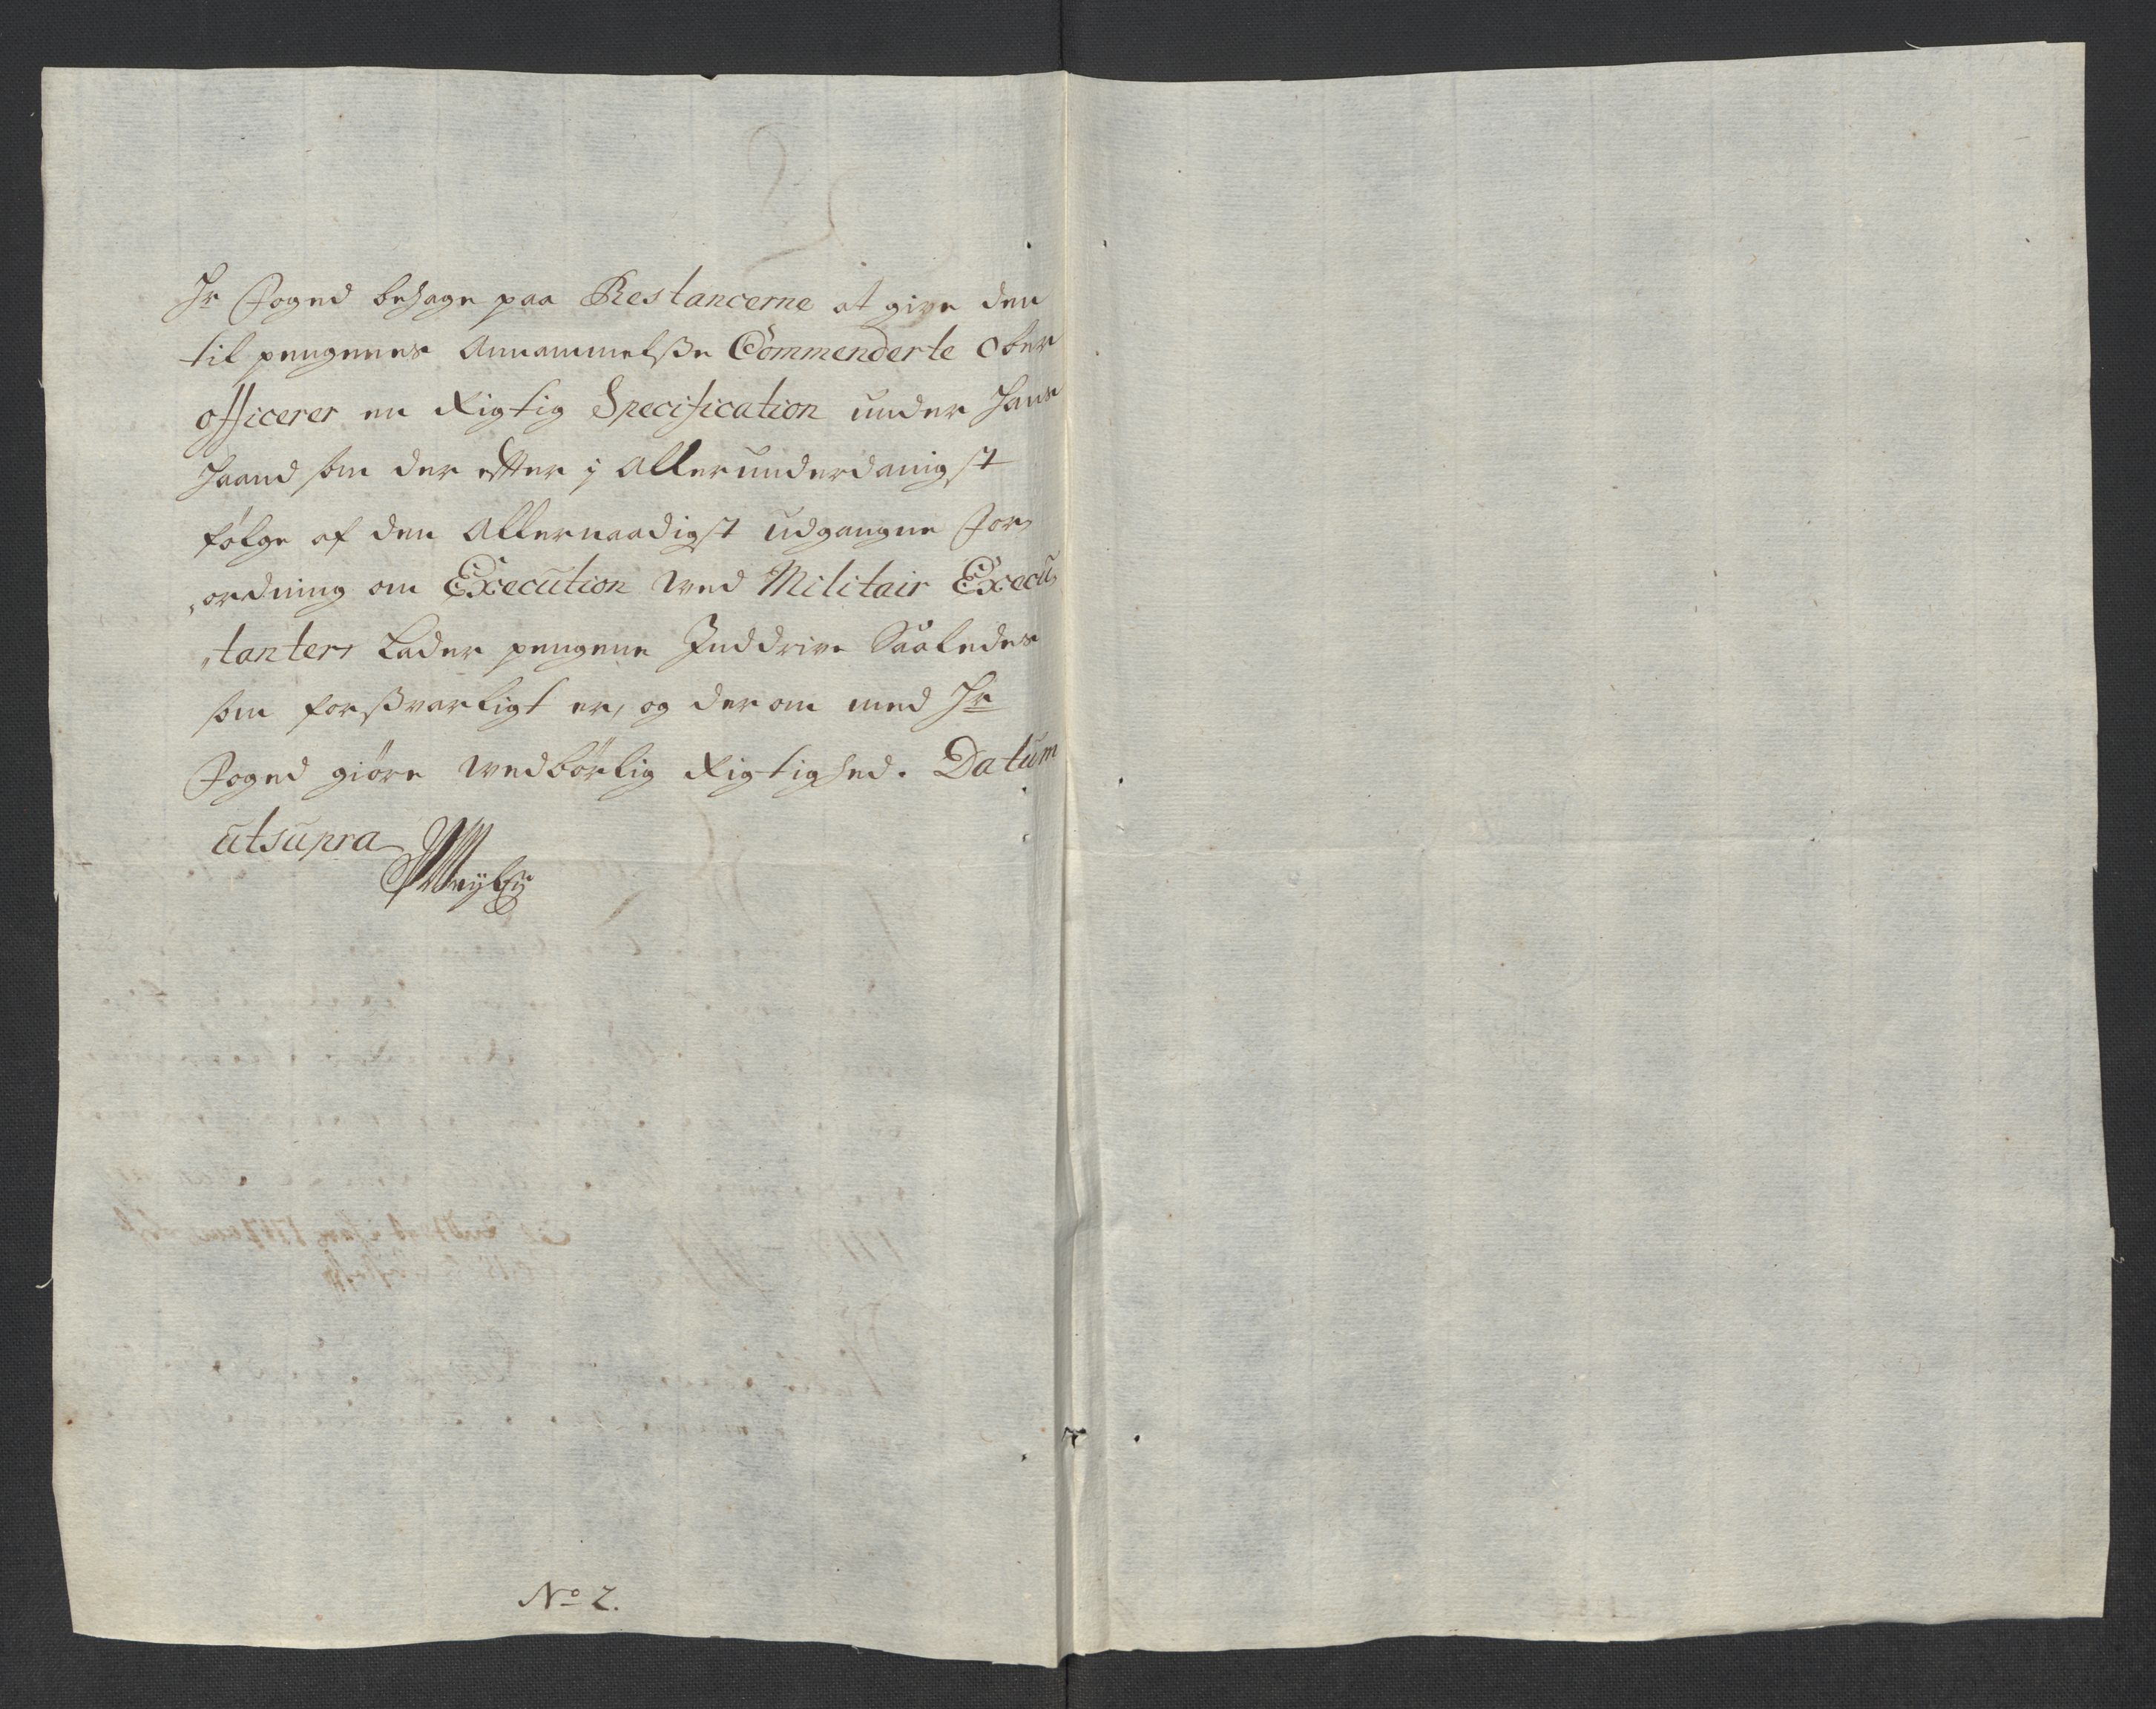 Hr Foged behage paa Restancerne at give den
til pengenes Annammelsße Commenderte Ober
officerer en Rigtig Specification under Hans
Haand som der efter i Allerunderdanigst
følge af den Allernaadigst udgangne For„
„ordning om Execution ved Militair Execu„
„tanter, Lader pengene Inddrive Saaledes
som forßvarligt er, og derom med Hr
Foged giøre vedbørlig Rigtighed. Datum
utsupra
No 2.